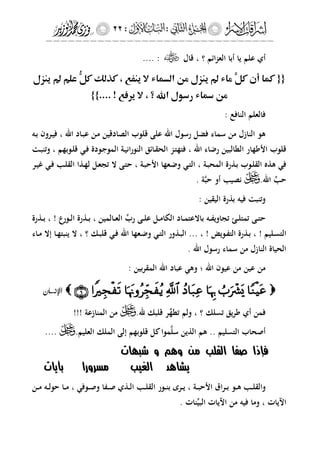 : ٢٢ :
أي علم يا أبا العزائم ؟ ، قال ﷺ : ....
{{ كما أن كلَّ ماء لم ينزل من السماء لا ينفع ، كذلك كلُّ علم لم ينزل
من سماء رسول الله ؟ ، لا يرفع ! .... }}
فالعلم النافع :
هو النازل من سماء فضل رسول الله على قلوب الصادقين من عباد الله ، فيرون به
قلوب الأطهار الطالبين رضاء الله ، فتهتز الحقائق النورانية الموجودة في قلوبهم ، وتنبت
في هذه القلوب بذرة المحبة ، التي وضعها الأحبة ، حتى لا تجعل لهذا القلب في غير
حبِّ الله نصيب أو حبَّة .
وتنبت فيه بذرة اليقين :
حتى تمتلئ تجاويفه بالاعتماد الكامل على ربِّ العالمين ، بذرة الورع ! ، بذرة
التسليم ! ، بذرة التفويض ! ، ... البذور التي وضعها الله في قلبك ؟ ، لا ينبتها إلا ماء
الحياة النازل من سماء رسول الله .
من عين من عيون الله ؛ وهي عباد الله المقربين :
﴿ عَيْنًا يَشْرَبُ بِهَا عِبَادُ اللَّهِ يُفَجِّرُونَهَا تَفْجِيرًا ﴾ الإنسان
فمن أي طريق تسلك ؟ ، ولم تطهِّر قلبك لله من المنازعة !!!
أصحاب التسليم .. هم الذين سلَّموا كل قلوبهم إلى الملك العليم ....
فإذا صفا القلب من وهم و شبهات
يشاهد الغيب مسرورا بآيات
والقلب هو براق الأحبة ، يرى بنور القلب الذي صفا وصوفي ، ما حوله من
الآيات ، وما فيه من الآيات البيِّنات .